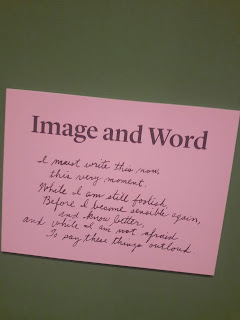 Image and Word
I must write this now,
this very moment.
While I am still foolish
Before I become sensible again,
and know better,
and while I am not afraid
To say these things outloud